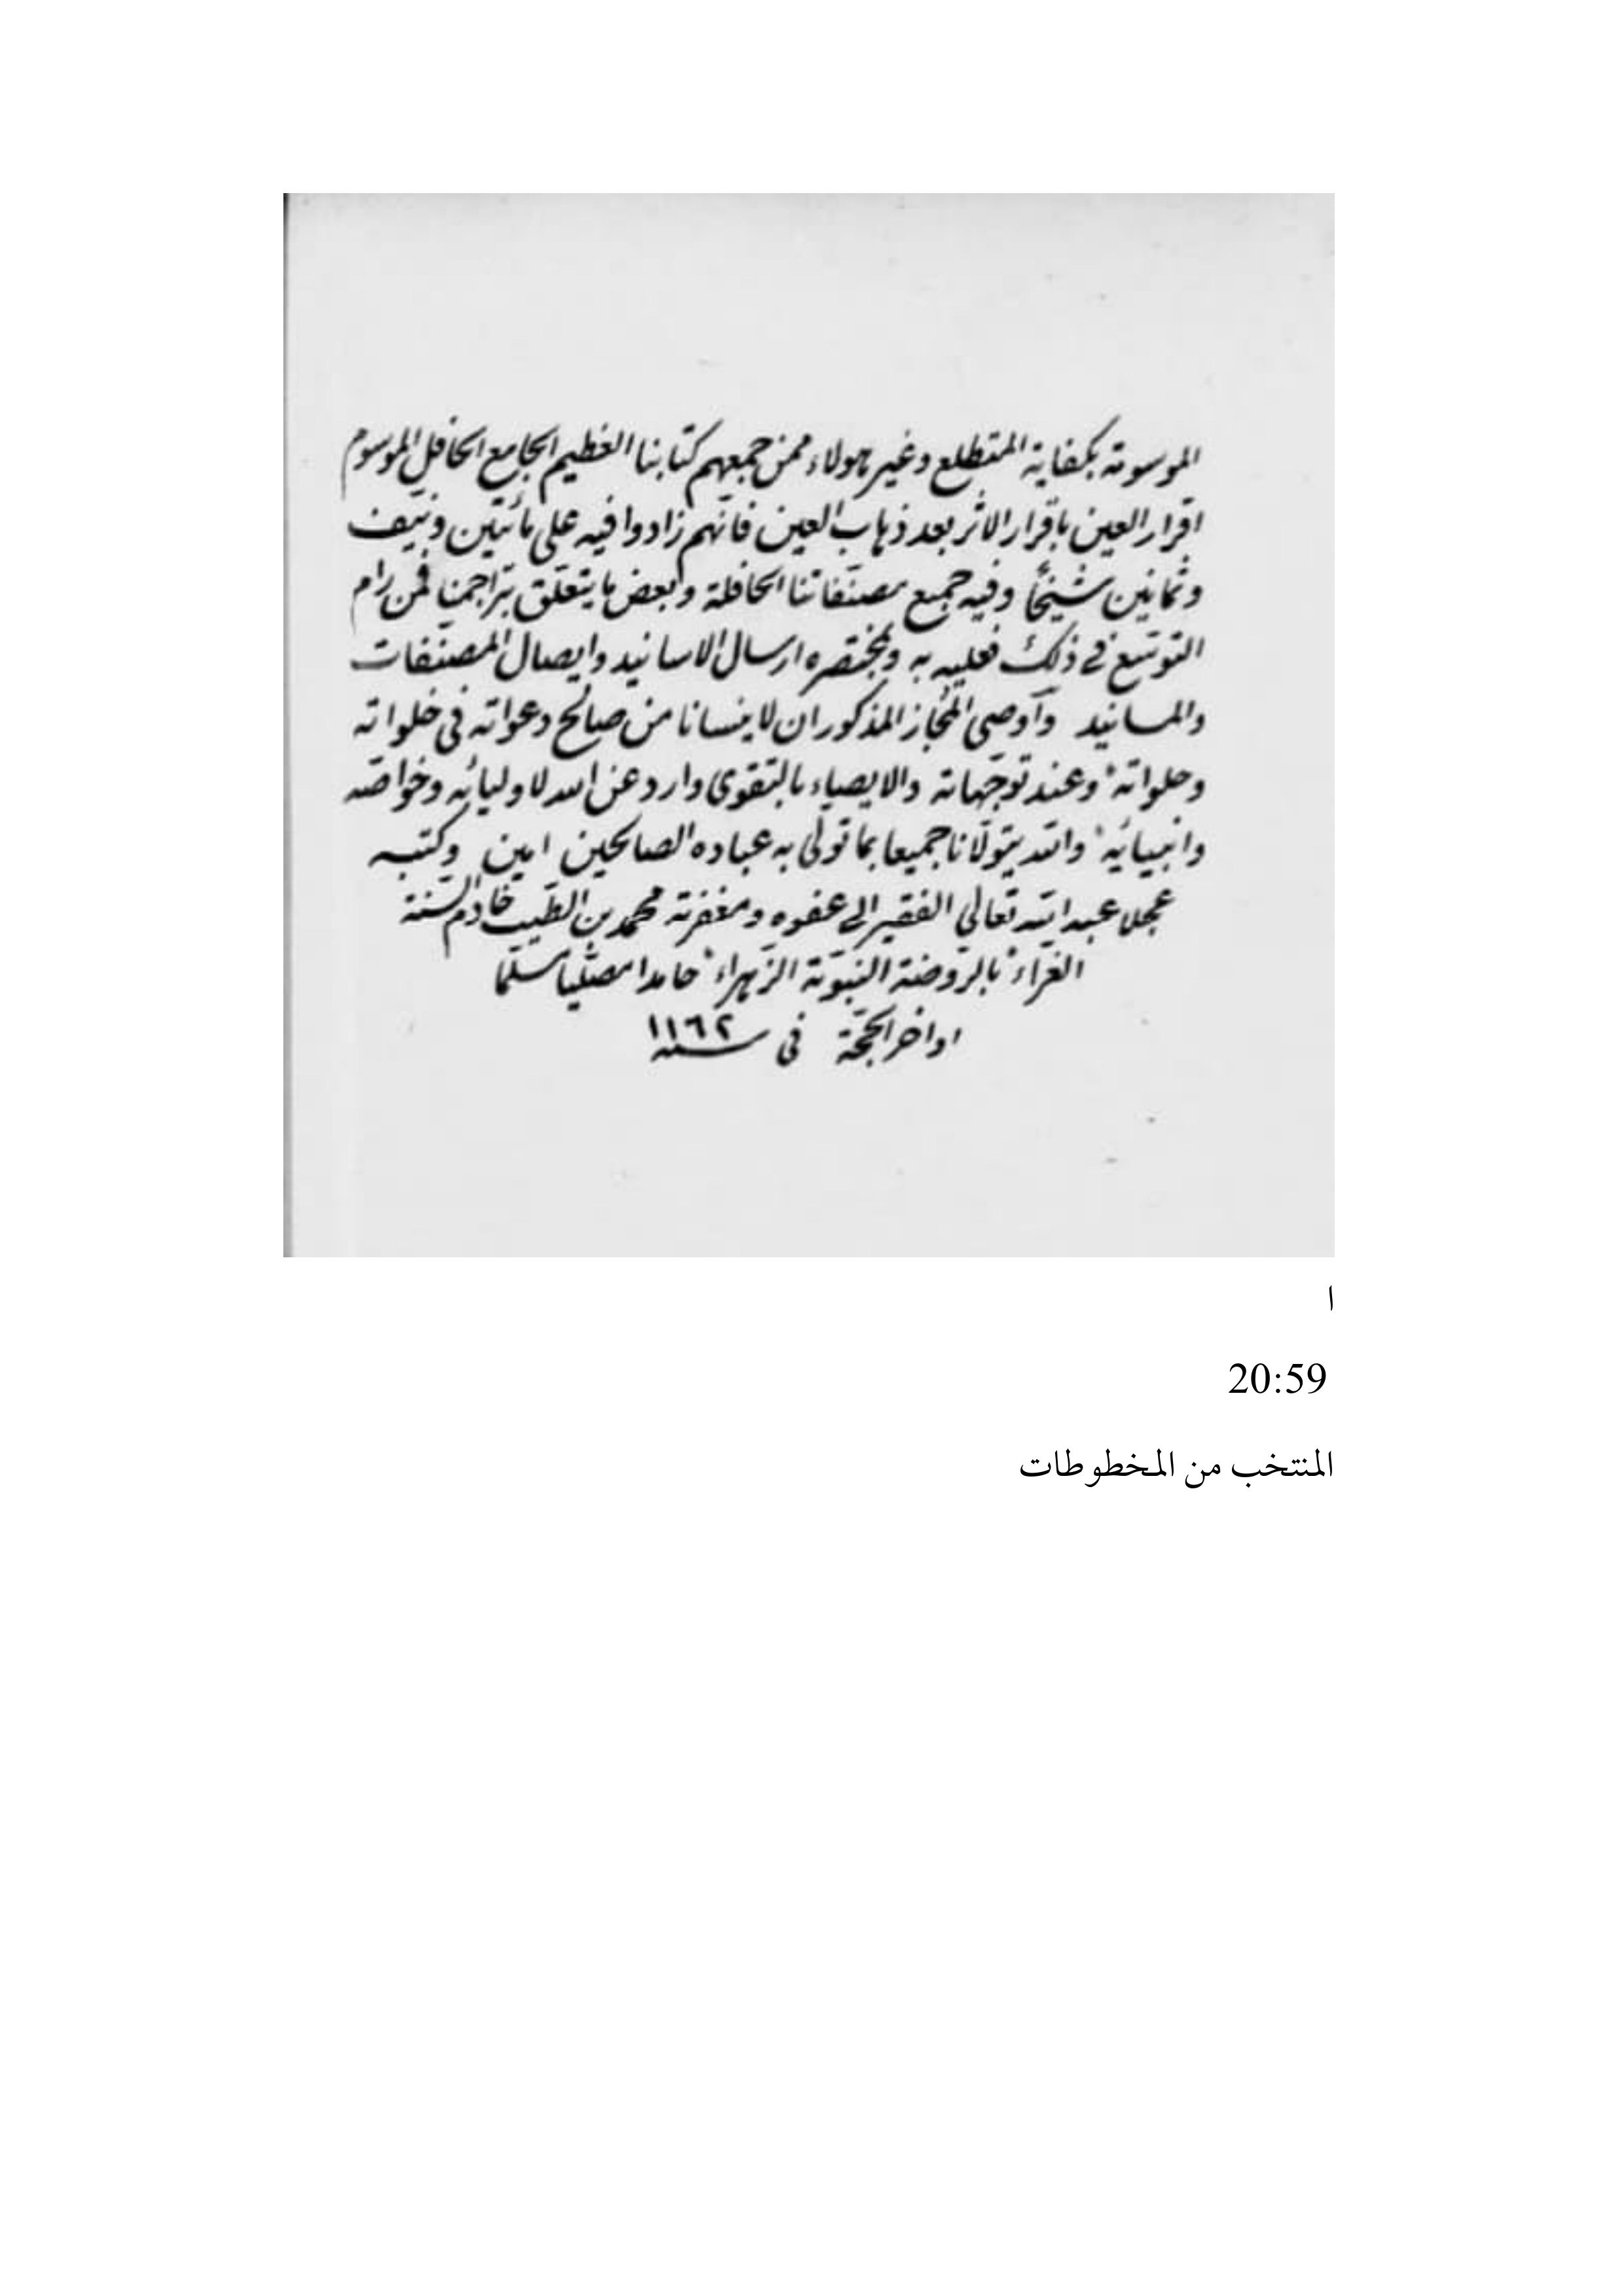 الموسومة بكفاية المتطلع وغير هولاء ممن جمعهم كتابنا العظيم الجامع الحافل الموسوم
اقرار العين باقرار الاثر بعد ذهاب العين فانهم زادوا فيه على مائتين ونيف
وثمانين شيخًا وفيه جميع مصنفاتنا الحافلة وبعض ما يتعلق بتراجمنا فمن رام
التوسع في ذلك فعليه به وبمختصره ارسال الاسانيد وايصال المصنفات
والمسانيد وأوصى المجاز المذكور ان لا ينسانا من صالح دعواته في خلواته
وجلواته وعند توجهاته والايصاء بالتقوى وارد عن الله لاوليائه وخواصه
وانبيائه والله يتولانا جميعا بما تولى به عباده الصالحين امين وكتبه
عجلا عبد الله تعالى الفقير الى عفوه ومغفرته محمد بن الطيب خادم السنة
الغراء بالروضة النبوية الزهراء حامدا مصليا مسلما
اواخر الحجة في سنة ١١٦٢
ا
20:59
المنتخب من المخطوطات